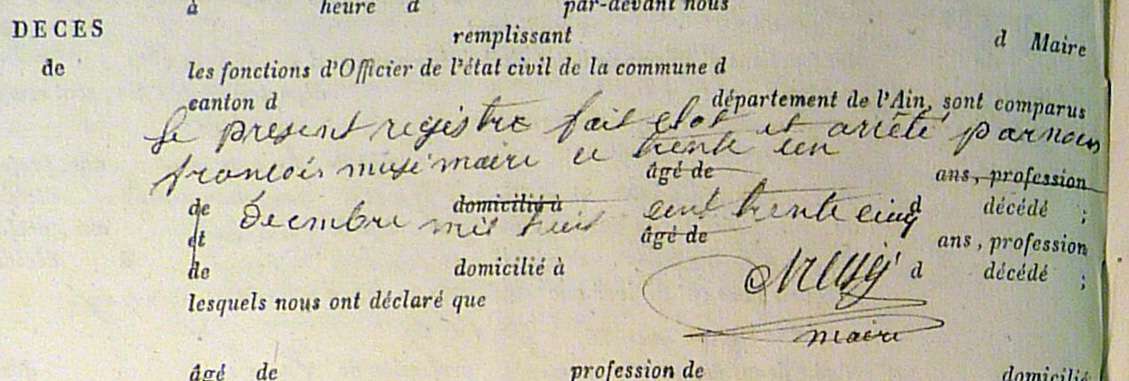 à heure d par-devant nous
DECES remplissant d Maire
de les fonctions d'Officier de l'état civil de la commune d
canton d département de l'Ain, sont comparus
Le present registre fait clos et arrêté par nous
francois musi maire ce trente un
âgé de ans, profession
de domicilié à d décédé ;
Decembre mil huit cent trente cinq
et âgé de ans, profession
de domicilié à d décédé ;
Musy
lesquels nous ont déclaré que
maire
âgé de profession de domicilié